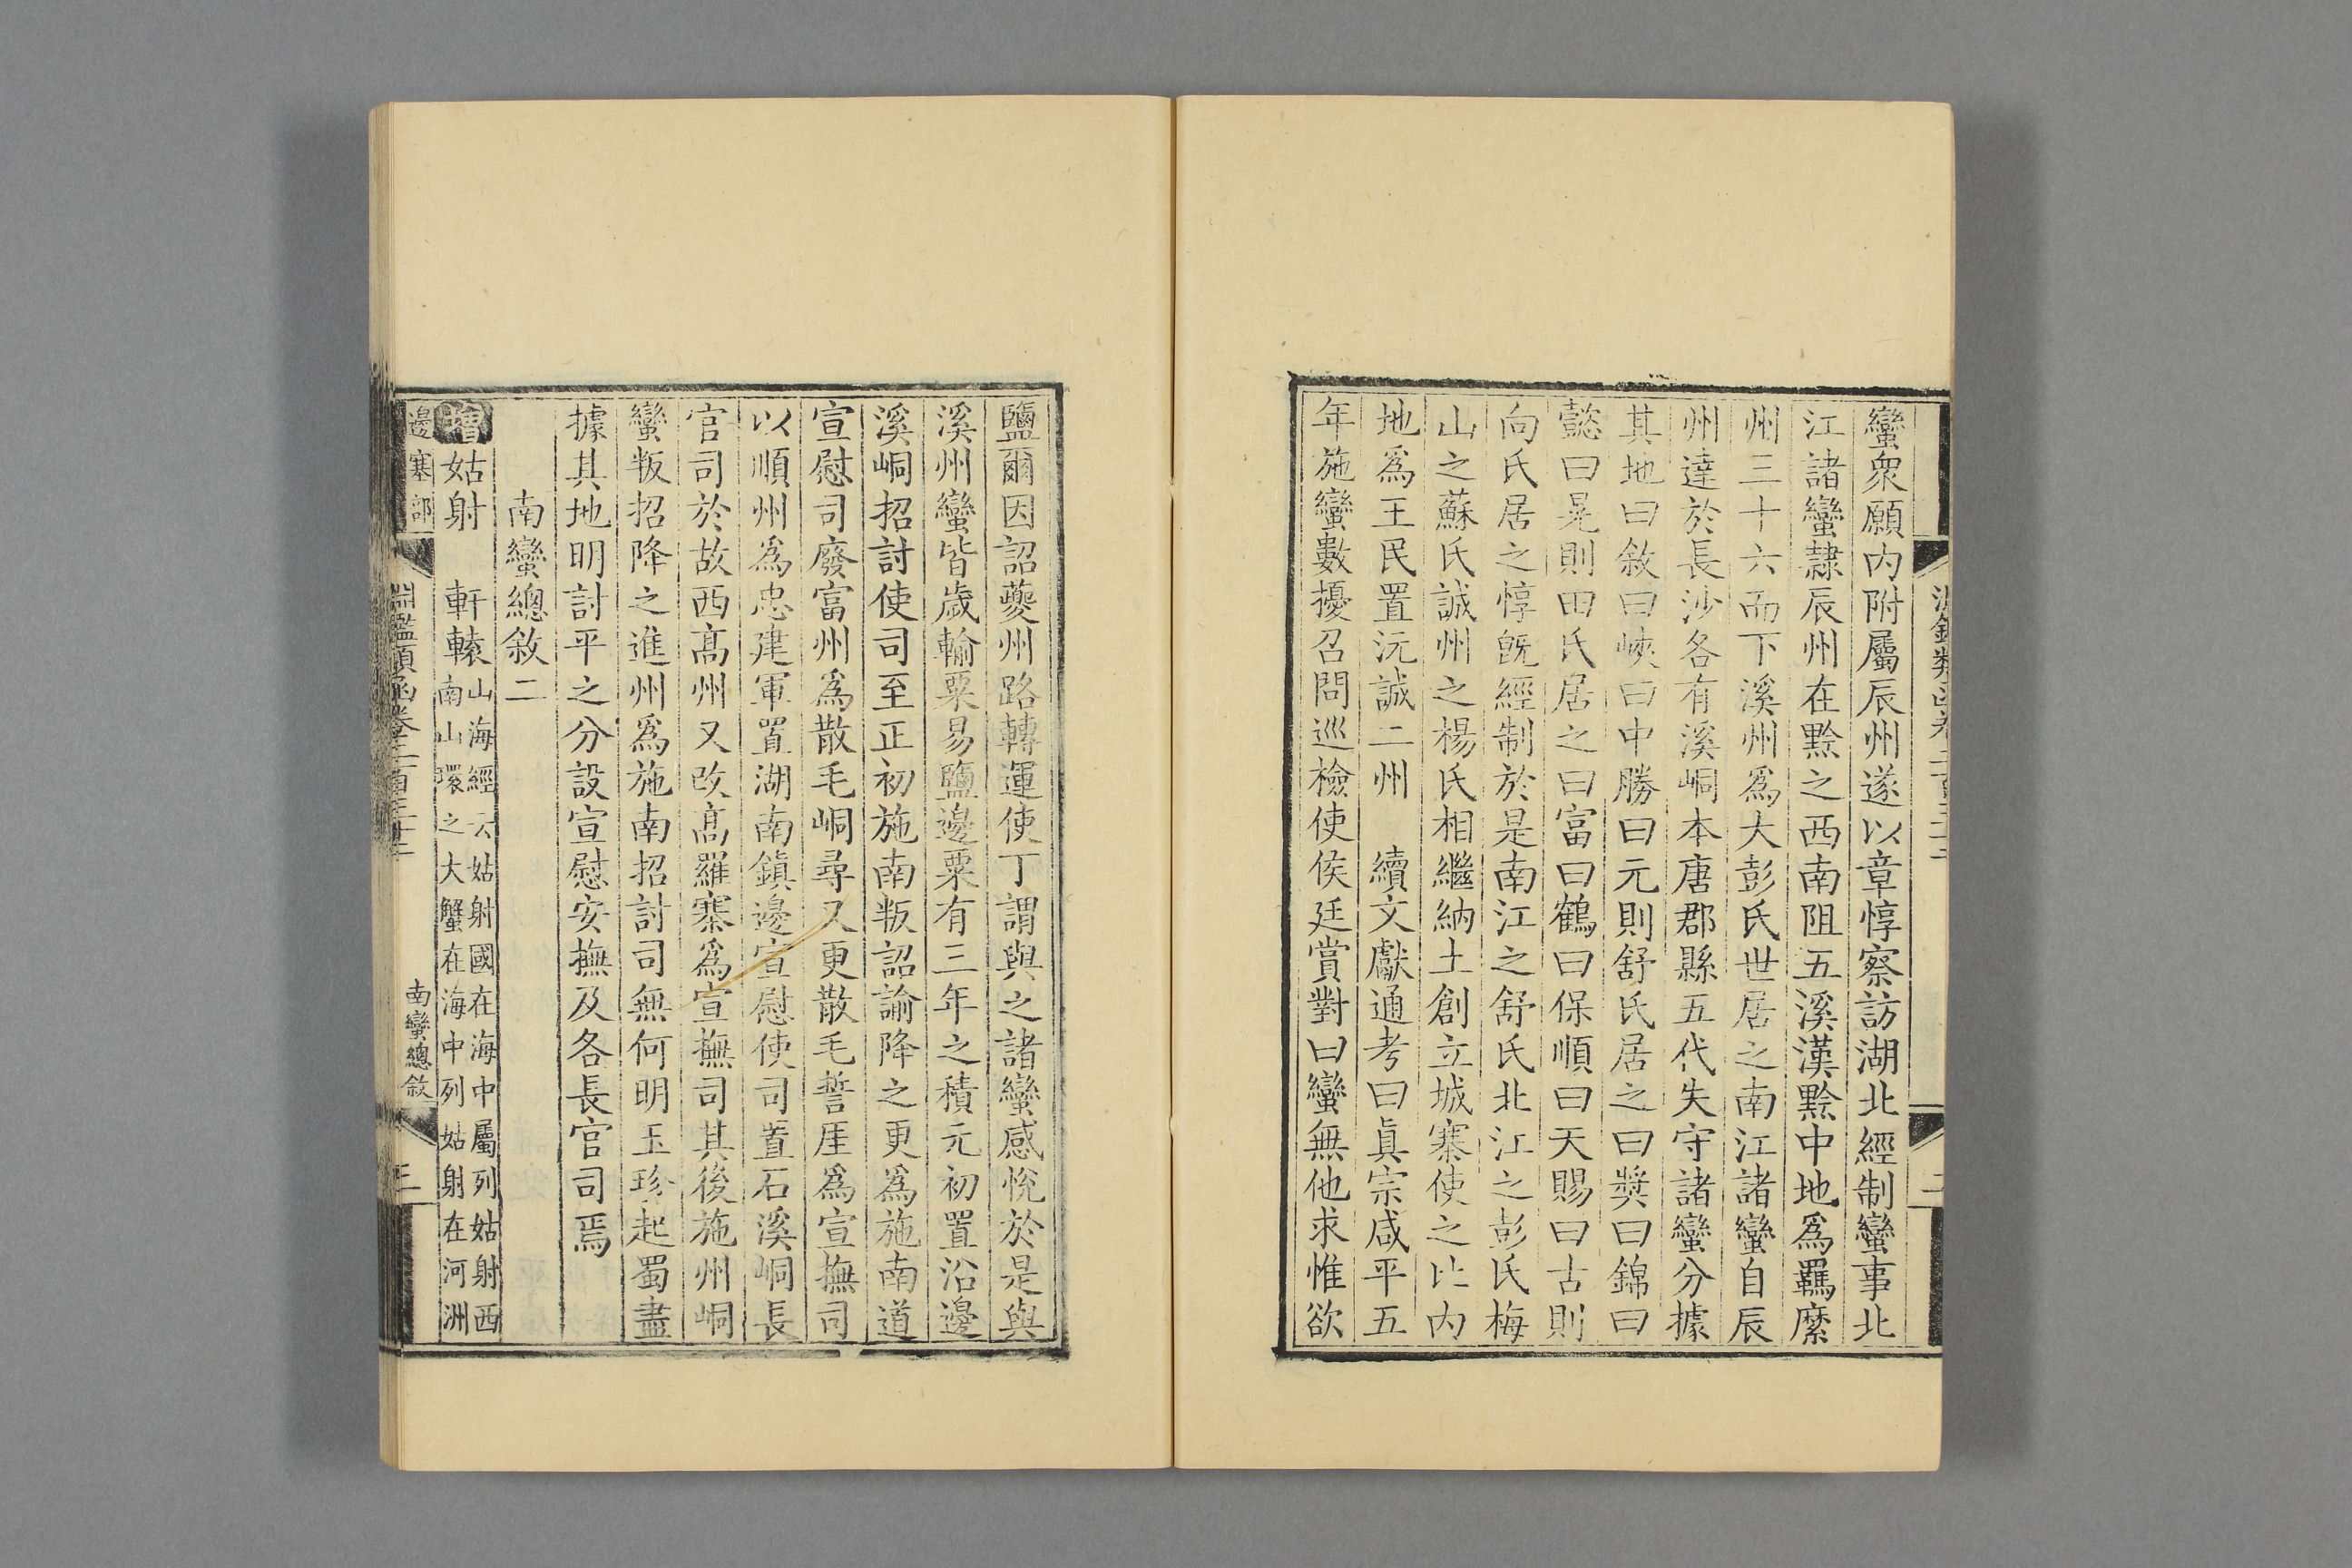 蠻衆願内附屬辰州遂以章惇察訪湖北經制蠻事北
江諸蠻隷辰州在黔之西南阻五溪漢黔中地爲羈縻
州三十六而下溪州爲大彭氏世居之南江諸蠻自辰
州達於長沙各有溪峒本唐郡縣五代失守諸蠻分據
其地曰敘曰峽曰中勝曰元則舒氏居之曰奬曰錦曰
懿曰晃則田氏居之曰富曰鶴曰保順曰天賜曰古則
向氏居之惇旣經制於是南江之舒氏北江之彭氏梅
山之蘇氏誠州之楊氏相繼納土創立城寨使之比内
地爲王民置沅誠二州　續文獻通考曰眞宗咸平五
年施蠻數擾召問巡檢使侯廷賞對曰蠻無他求惟欲
鹽爾因詔夔州路轉運使丁謂與之諸蠻感悅於是與
溪州蠻皆歲輸粟易鹽邊粟有三年之積元初置沿邊
溪峒招討使司至正初施南叛詔諭降之更爲施南道
宣慰司廢富州爲散毛峒尋又更散毛誓厓爲宣撫司
以順州爲忠建軍置湖南鎭邊宣慰使司置石溪峒長
官司於故西髙州又改髙羅寨爲宣撫司其後施州峒
蠻叛招降之進州爲施南招討司無何明玉珍起蜀盡
據其地明討平之分設宣慰安撫及各長官司焉
南蠻總敘二
增姑射　軒轅山海經云姑射國在海中屬列姑射西
南山環之大蟹在海中列姑射在河洲
邊塞部
淵鑑類函卷二百三十三
南蠻總敘
三